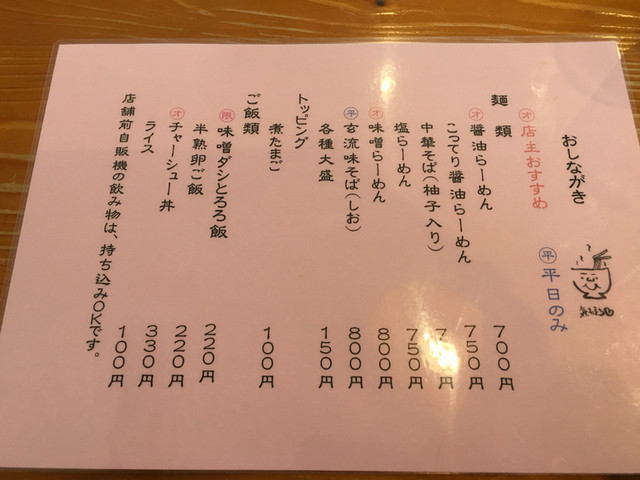 おしながき
㋔店主おすすめ
㊥平日のみ
麺類
㋔醤油らーめん 700円
こってり醤油らーめん 750円
中華そば(柚子入り) 円
塩らーめん 750円
㋔味噌らーめん 800円
平玄流味そば(しお) 800円
各種大盛 150円
トッピング
煮たまご 100円
ご飯類
限味噌ダシとろろ飯 220円
半熟卵ご飯 220円
㋔チャーシュー丼 330円
ライス 100円
店舗前自販機の飲み物は、持ち込みOKです。